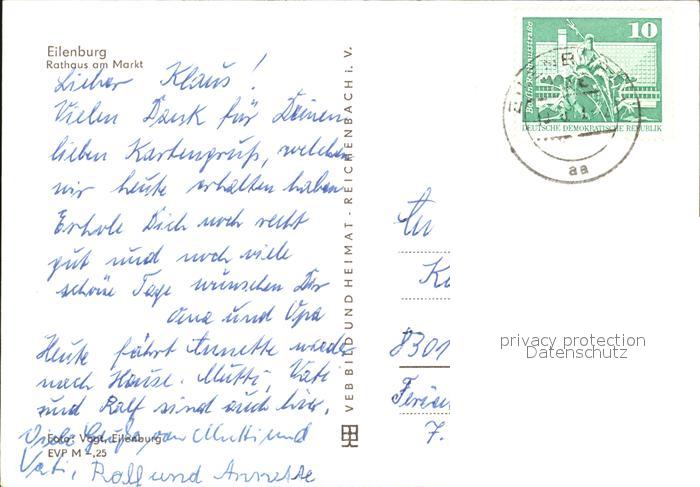 Eilenburg
Rathaus am Markt
Lieber Klaus!
Vielen Dank für Deinen
lieben Kartengruß, welchen
wir heute erhalten haben
Erhole Dich noch recht
gut und noch viele
schöne Tage wünschen Dir
Oma und Opa
Heute fährt Annette wieder
nach Hause. Mutti, Vati
und Ralf sind auch hier.
Viele Grüße von Mutti und
Vati, Ralf und Annette
Foto: Vogt, Eilenburg
EVP M -,25
VEB BILD UND HEIMAT - REICHENBACH i. V.
10
Berlin, Rathausstraße
DEUTSCHE DEMOKRATISCHE REPUBLIK
aa
An
8301
7.
privacy protection
Datenschutz